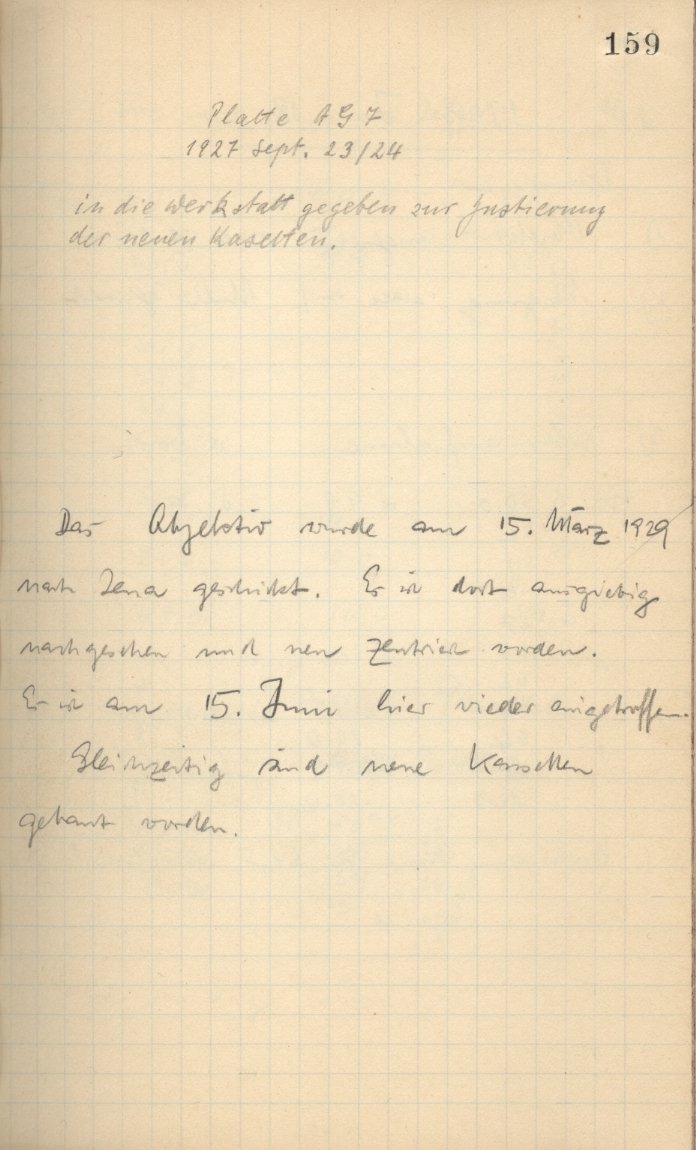 159
Platte AG 7
1927 Sept. 23/24
in die Werkstatt gegeben zur Justierung
der neuen Kasetten.
Das Objektiv wurde am 15. März 1929
nach Jena geschickt. Es ist dort ausgiebig
nachgesehen und neu zentriert worden.
Es ist am 15. Juni hier wieder eingetroffen.
Gleichzeitig sind neue Kassetten
gebaut worden.